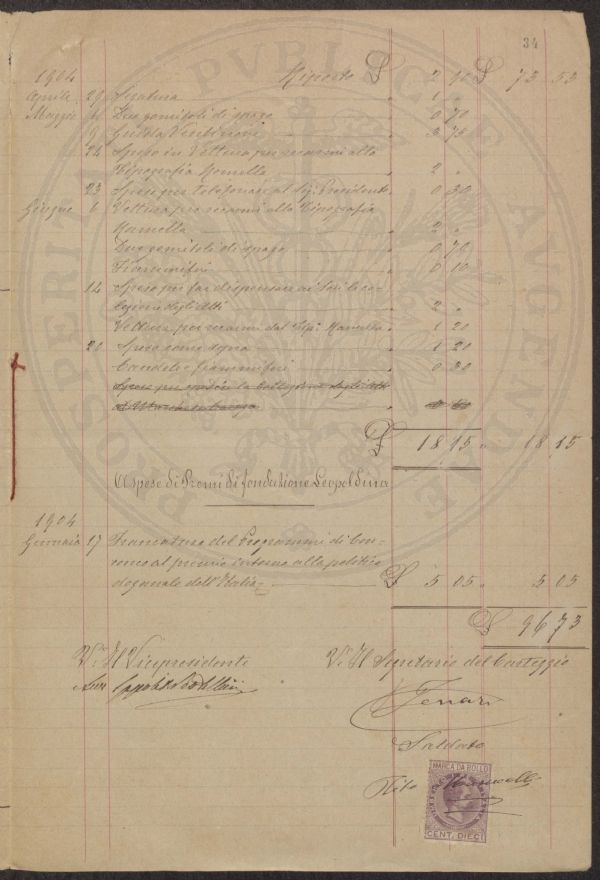 34
1904 Riporto £ 2 90 £ 73 53
Aprile 29 Segatura " 1 "
Maggio 6 Due gomitoli di spago " 0 70
9 Guida " 3 75
24 Spese in Vettura per recarmi alla
Tipografia Ramella " 2 "
23 Spese per telefonare al Sig. Presidente " 0 30
Giugno 6 Vettura per recarmi alla Tipografia
Ramella " 2 "
Due gomitoli di spago " 0 70
Fiammiferi " 0 10
14 Spese per far dispensare ai Soci la col-
lezione degli Atti " 2 "
Vettura per recarmi dal Tip. Ramella " 1 20
20 Spese come sopra " 1 20
Candele e fiammiferi " 0 30
Spese per la Collezione degli Atti
£ 18 15 " 18 15
Spese di Premi di fondazione Leopoldina
1904
Gennaio 17 Francatura del Programmi di Con-
corso al premio intorno alla politica
doganale dell'Italia £ 5 05 " 5 05
£ 96 73
V° Il Vicepresidente V. Il Segretario del Carteggio
Saldato
MARCA DA BOLLO
CENT. DIECI
PROSPERITATI PVBLICAE AVGENDAE